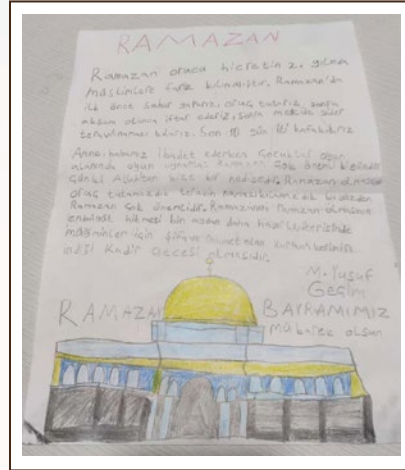 RAMAZAN
Ramazan orucu hicretin 2. yılında
müslimlere farz kılınmıştır. Ramazan'da
ilk önce sahur yaparız, oruç tutarız, sonra
akşam olunca iftar ederiz, sonra mescide gider
teravi namazı kılarız. Son 10 gün
Anne, babamız ibadet ederken çocuklar oyun
alanında oyun oynarlar. Ramazan çok önemli
Çünkü Allahtan bize bir hediyedir. Ramazan olmasa
oruç tutamazdık teravih namazı kılamazdık bu yüzden
Ramazan çok önemlidir. Ramazanın Ramazan olmasının
hikmeti bin aydan daha hayırlı içerisinde
müslimler için şifa
indiği Kadir Gecesi olmasıdır.
M. Yusuf
Geçim
RAMAZAN BAYRAMIMIZ
mübarek olsun